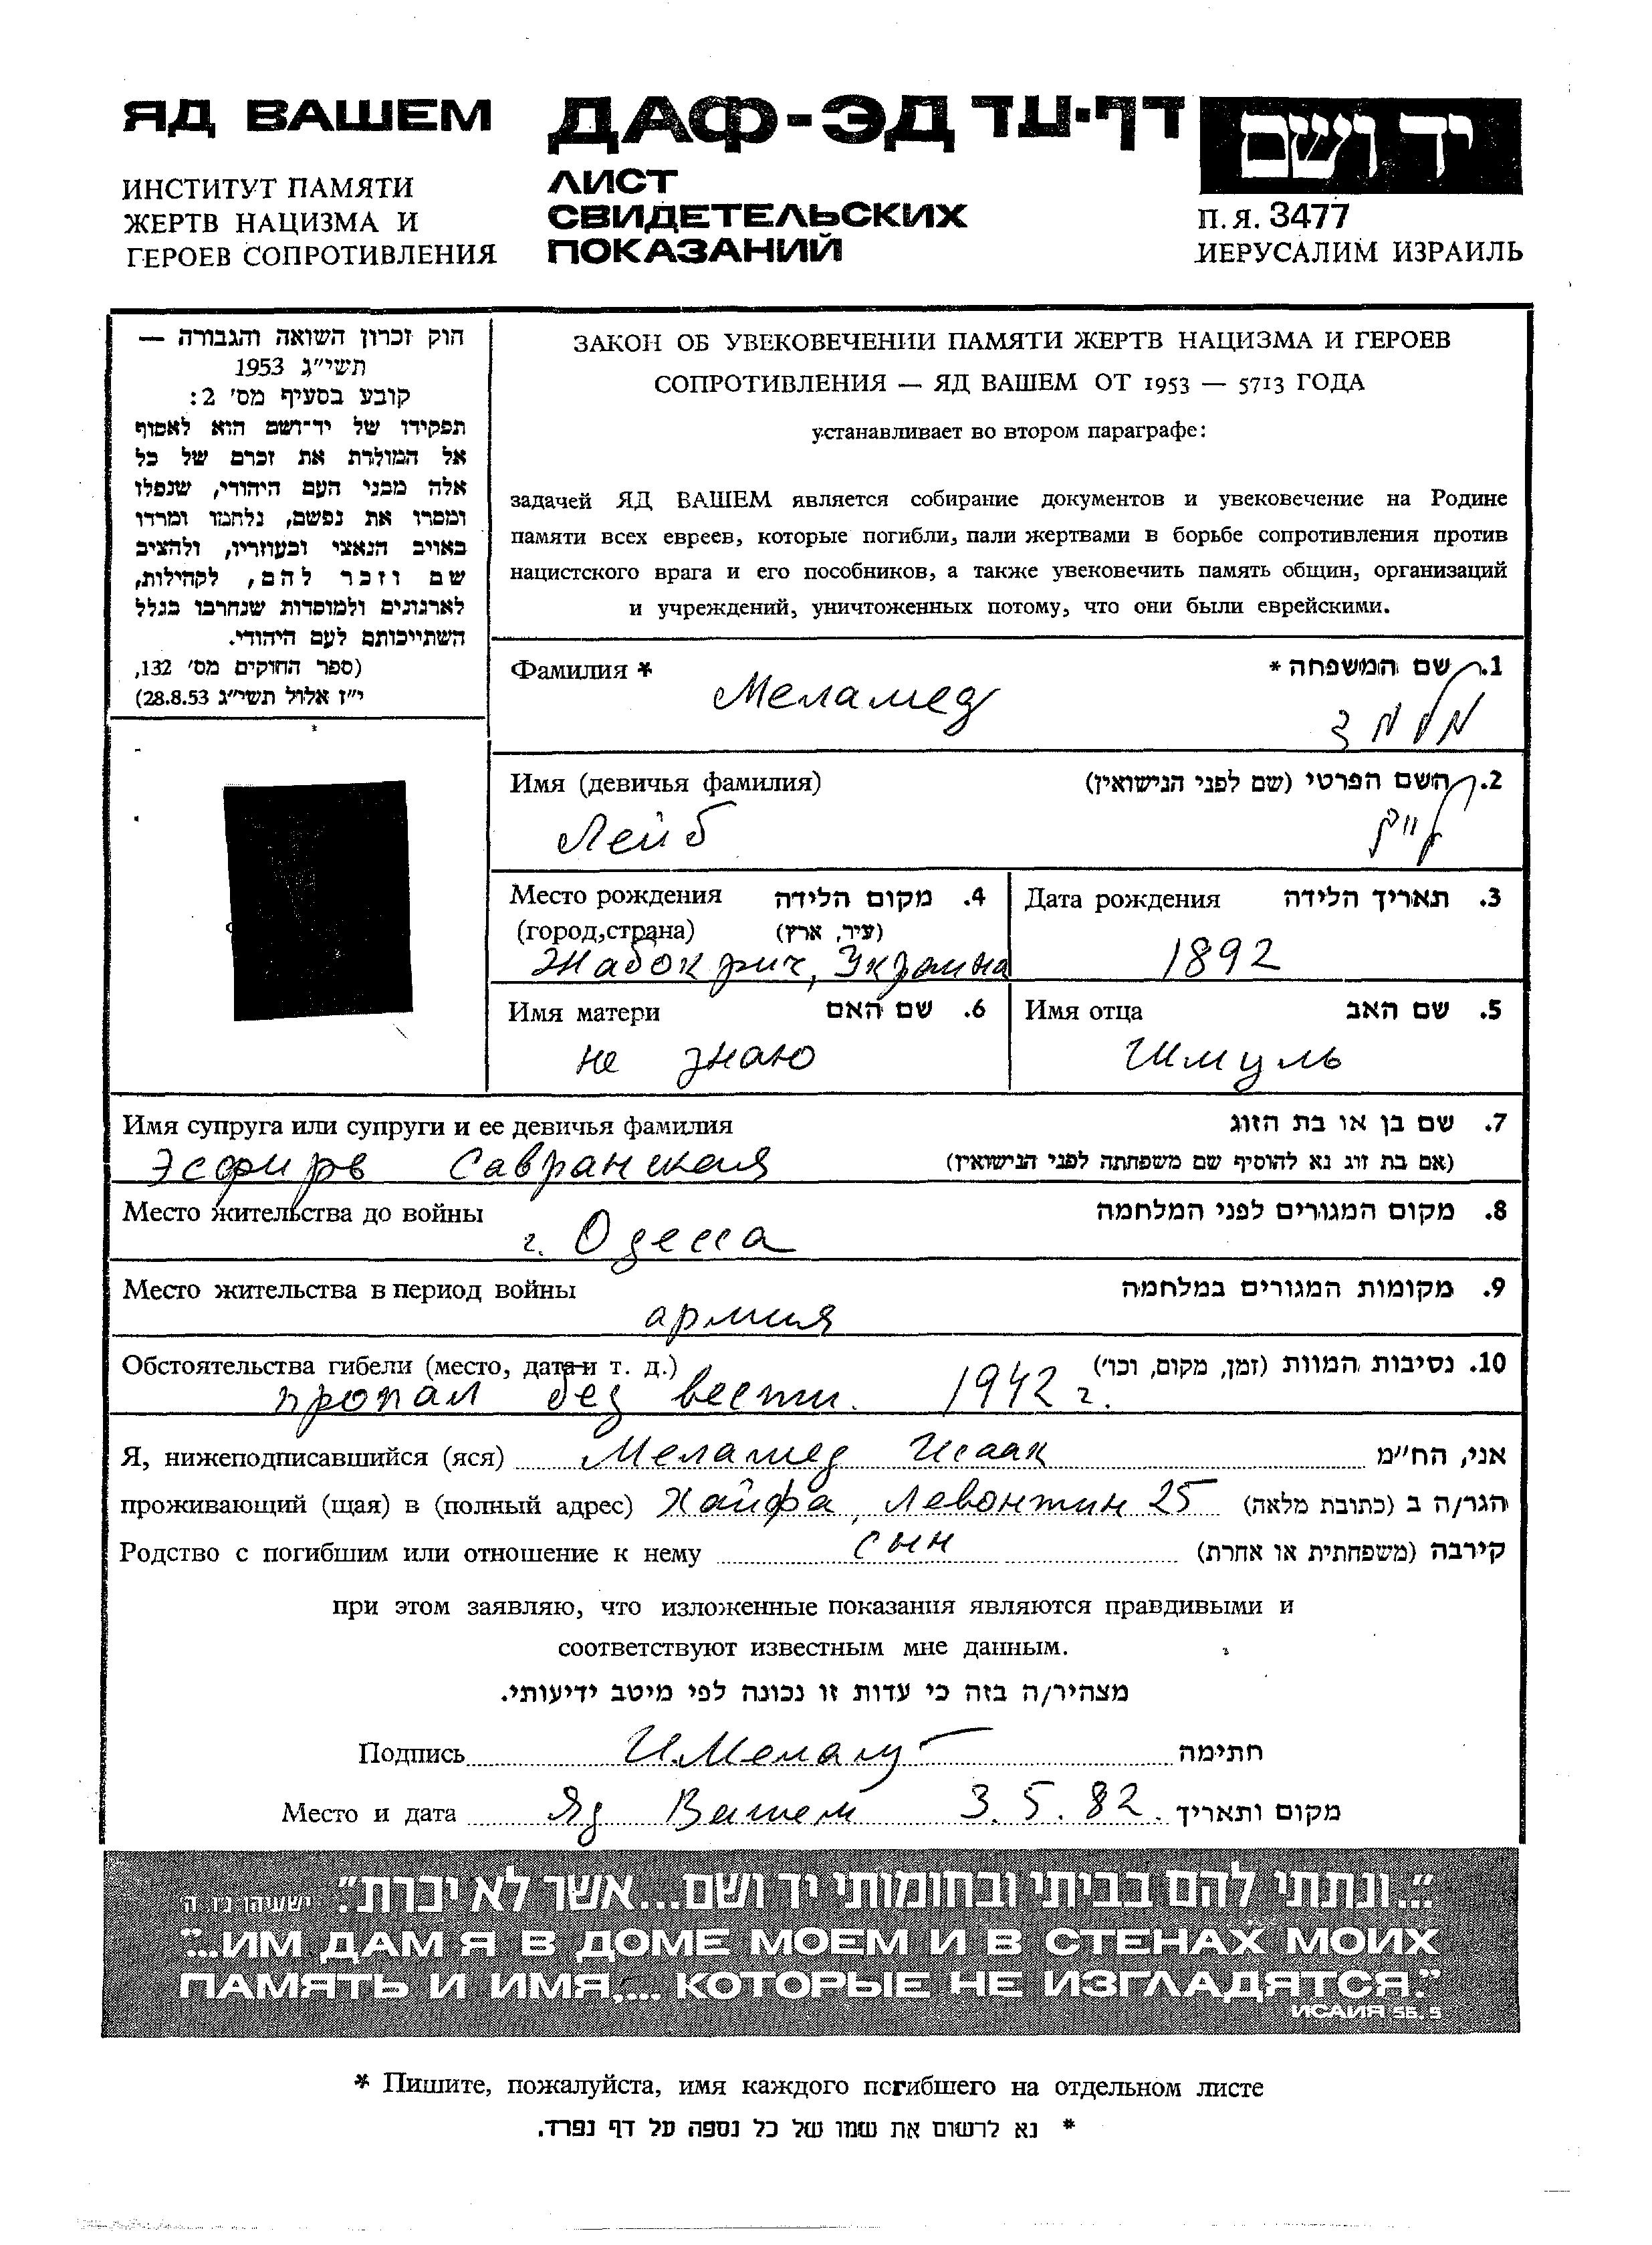 ЯД ВАШЕМ
ИНСТИТУТ ПАМЯТИ
ЖЕРТВ НАЦИЗМА И
ГЕРОЕВ СОПРОТИВЛЕНИЯ
ДАФ-ЭД דף-עד
ЛИСТ
СВИДЕТЕЛЬСКИХ
ПОКАЗАНИЙ
יד ושם
П.Я. 3477
ИЕРУСАЛИМ ИЗРАИЛЬ
חוק זכרון השואה והגבורה —
תשי״ג 1953
קובע בסעיף מס׳ 2:
תפקידו של יד־ושם הוא לאסוף
אל המולדת את זכרם של כל
אלה מבני העם היהודי, שנפלו
ומסרו את נפשם, נלחמו ומרדו
באויב הנאצי ובעוזריו, ולהציב
שם וזכר להם, לקהילות,
לארגונים ולמוסדות שנחרבו בגלל
השתייכותם לעם היהודי.
(ספר החוקים מס׳ 132,
י״ז אלול תשי״ג 28.8.53)
ЗАКОН ОБ УВЕКОВЕЧЕНИИ ПАМЯТИ ЖЕРТВ НАЦИЗМА И ГЕРОЕВ
СОПРОТИВЛЕНИЯ — ЯД ВАШЕМ ОТ 1953 — 5713 ГОДА
устанавливает во втором параграфе:
задачей ЯД ВАШЕМ является собирание документов и увековечение на Родине
памяти всех евреев, которые погибли, пали жертвами в борьбе сопротивления против
нацистского врага и его пособников, а также увековечить память общин, организаций
и учреждений, уничтоженных потому, что они были еврейскими.
Фамилия * 1. שם המשפחה *
Меламед מלמד
Имя (девичья фамилия) 2. השם הפרטי (שם לפני הנישואין)
Лейб לייב
Место рождения 4. מקום הלידה
(город,страна) (עיר, ארץ)
Жабокрич, Украина
Дата рождения 3. תאריך הלידה
1892
Имя матери 6. שם האם
не знаю
Имя отца 5. שם האב
Шмуль
Имя супруга или супруги и ее девичья фамилия 7. שם בן או בת הזוג
Эсфирь Савранская (אם בת זוג נא להוסיף שם משפחתה לפני הנישואין)
Место жительства до войны 8. מקום המגורים לפני המלחמה
г. Одесса
Место жительства в период войны 9. מקומות המגורים במלחמה
армия
Обстоятельства гибели (место, дата и т. д.) 10. נסיבות המוות (זמן, מקום, וכו׳)
пропал без вести. 1942 г.
Я, нижеподписавшийся (яся) Меламед Исаак אני, הח״מ
проживающий (щая) в (полный адрес) Хайфа, Левонтин 25 הגר/ה ב (כתובת מלאה)
Родство с погибшим или отношение к нему сын קירבה (משפחתית או אחרת)
при этом заявляю, что изложенные показания являются правдивыми и
соответствуют известным мне данным.
מצהיר/ה בזה כי עדות זו נכונה לפי מיטב ידיעותי.
Подпись И.Мелам חתימה
Место и дата Яд Вашем 3.5.82. מקום ותאריך
"...ונתתי להם בביתי ובחומותי יד ושם...אשר לא יכרת". ישעיהו נ״ו, ה׳
"...ИМ ДАМ Я В ДОМЕ МОЕМ И В СТЕНАХ МОИХ
ПАМЯТЬ И ИМЯ,... КОТОРЫЕ НЕ ИЗГЛАДЯТСЯ."
ИСАИЯ 56.5
* Пишите, пожалуйста, имя каждого погибшего на отдельном листе
* נא לרשום את שמו של כל נספה על דף נפרד.